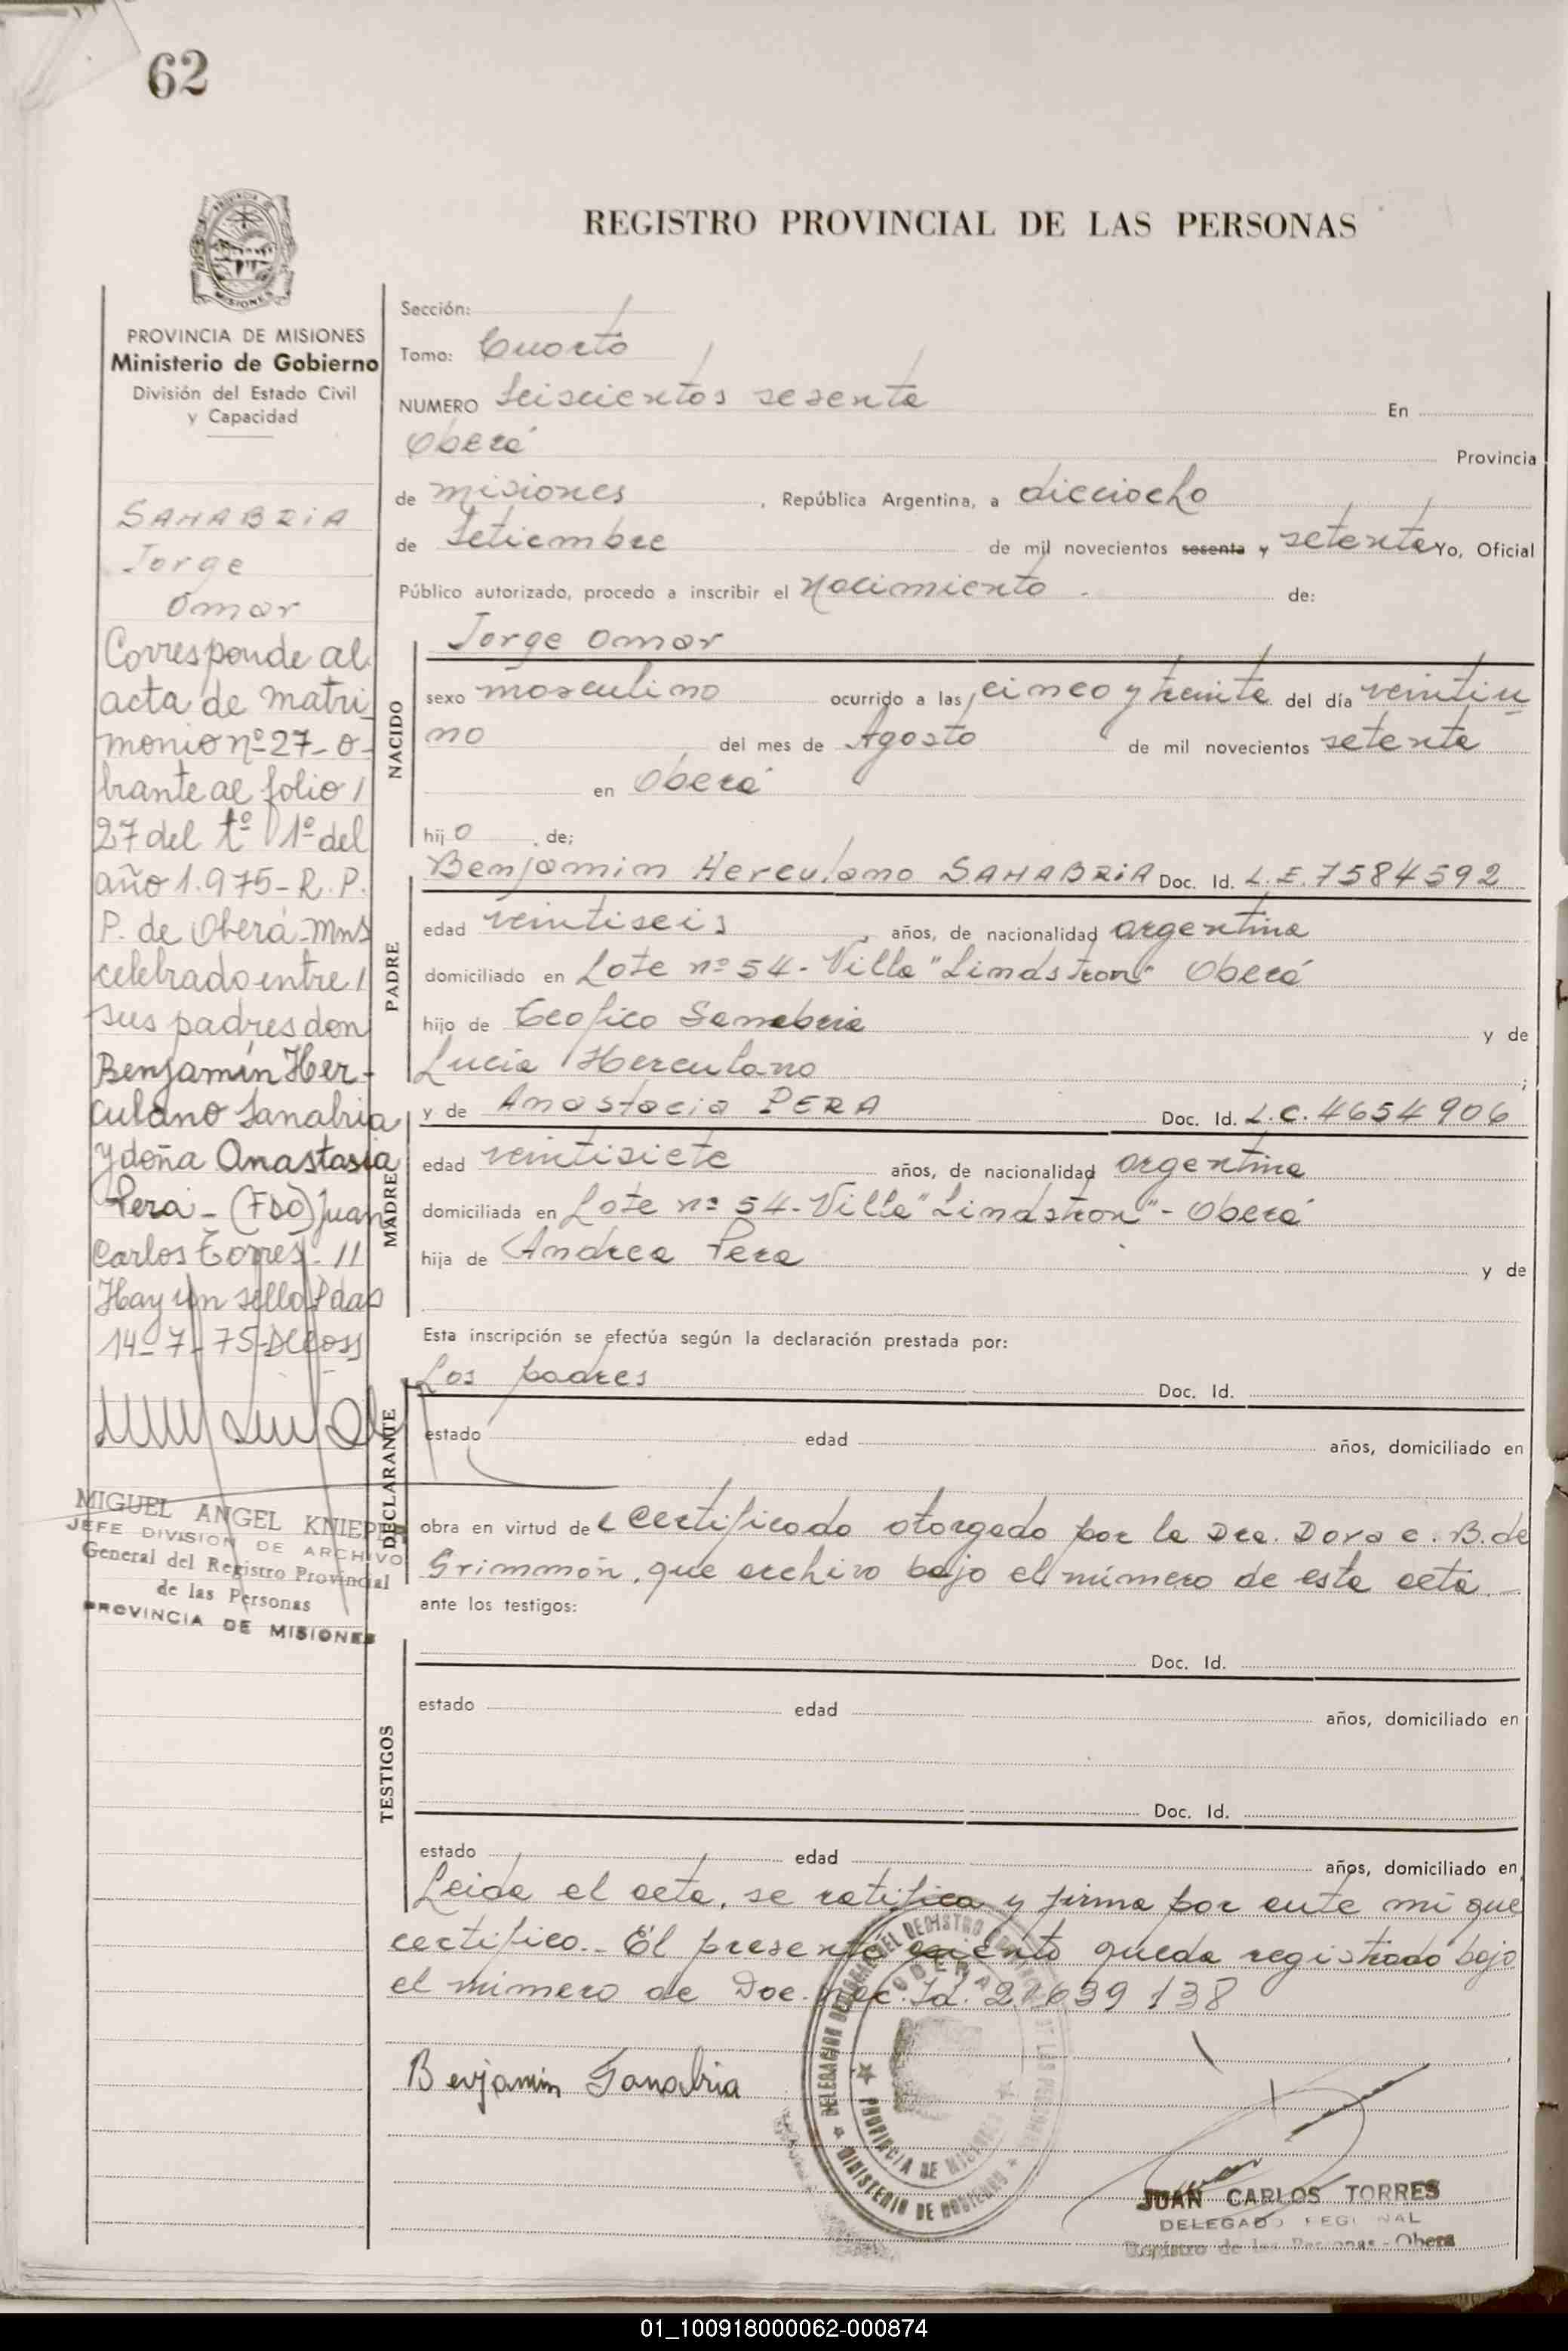 62
PROVINCIA DE MISIONES
Ministerio de Gobierno
División del Estado Civil
y Capacidad
SANABRIA
Jorge
Omar
Corresponde al
acta de matri-
monio nº 27- o-
brante al folio /
27 del tº 1º del
año 1.975- R. P.
P. de Oberá-Mns
celebrado entre /
sus padres don
Benjamín Her-
culano Sanabria
y doña Anastasia
Pera - (FDO) Juan
Carlos Torres - //
Hay un sello Pdas
14-7-75-
MIGUEL ANGEL KNIEPP
JEFE DIVISION DE ARCHIVO
General del Registro Provincial
de las Personas
PROVINCIA DE MISIONES
REGISTRO PROVINCIAL DE LAS PERSONAS
Sección:
Tomo: Cuarto
NUMERO Seiscientos sesenta En
Oberá Provincia
de Misiones, República Argentina, a dieciocho
de Setiembre de mil novecientos sesenta y setenta Yo, Oficial
Público autorizado, procedo a inscribir el Nacimiento. de:
NACIDO
Jorge Omar
sexo masculino ocurrido a las cinco y treinta del día veintiu
no del mes de Agosto de mil novecientos setenta
en Oberá
hijo de;
PADRE
Benjamin Herculano SANABRIA Doc. Id. L.E. 7584592
edad veintiseis años, de nacionalidad argentina
domiciliado en Lote nº 54- Villa "Lindstron" Oberá
hijo de Teofico Sanabria y de
Lucia Herculano;
MADRE
y de Anastacia PERA Doc. Id. L.C. 4654906
edad veintisiete años, de nacionalidad argentina
domiciliada en Lote nº 54-Villa "Lindstron"- Oberá
hija de Andrea Pera y de
Esta inscripción se efectúa según la declaración prestada por:
DECLARANTE
Los padres Doc. Id.
estado edad años, domiciliado en
obra en virtud de Certificado otorgado por la Dra. Dora E. B. de
Grimmón, que archivo bajo el número de esta acta.-
ante los testigos:
TESTIGOS
Doc. Id.
estado edad años, domiciliado en
Doc. Id.
estado edad años, domiciliado en
Leida el acta, se ratifica y firma por ante mi que
certifico.- El presente asiento queda registrado bajo
el número de Doc. Nac. Id. 21639138
Benjamin Sanabria
DELEGACION REGIONAL DEL REGISTRO PROVINCIAL DE LAS PERSONAS
OBERA
PROVINCIA DE MISIONES
MINISTERIO DE GOBIERNO
JUAN CARLOS TORRES
DELEGADO REGIONAL
Registro de las Personas - Obera
01_100918000062-000874